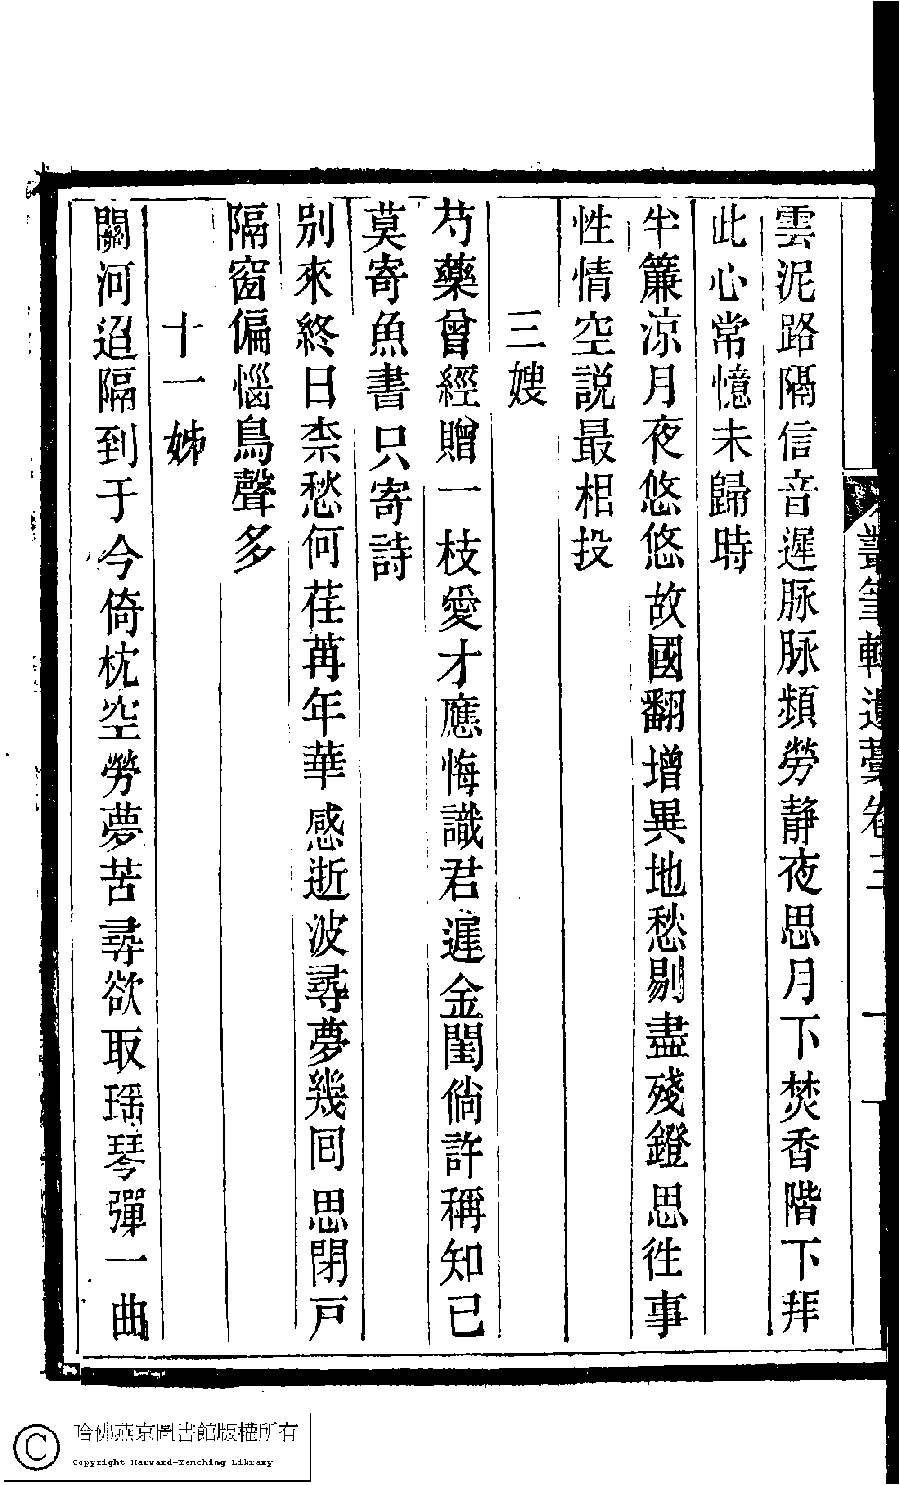 雲泥路隔信音遲脈脈頻勞靜夜思月下焚香階下拜
此心常憶未歸時
半簾涼月夜悠悠故國翻增異地愁剔盡殘鐙思往事
性情空説最相投
三嫂
芍藥曾經贈一枝愛才應悔識君遲金閨倘許稱知己
莫寄魚書只寄詩
別來終日柰愁何荏苒年華感逝波尋夢幾囘思閉戸
隔窗偏惱鳥聲多
十一姊
關河迢隔到于今倚枕空勞夢苦尋欲取瑶琴彈一曲
哈佛燕京圖書館版權所有
Copyright Harvard-Yenching Library